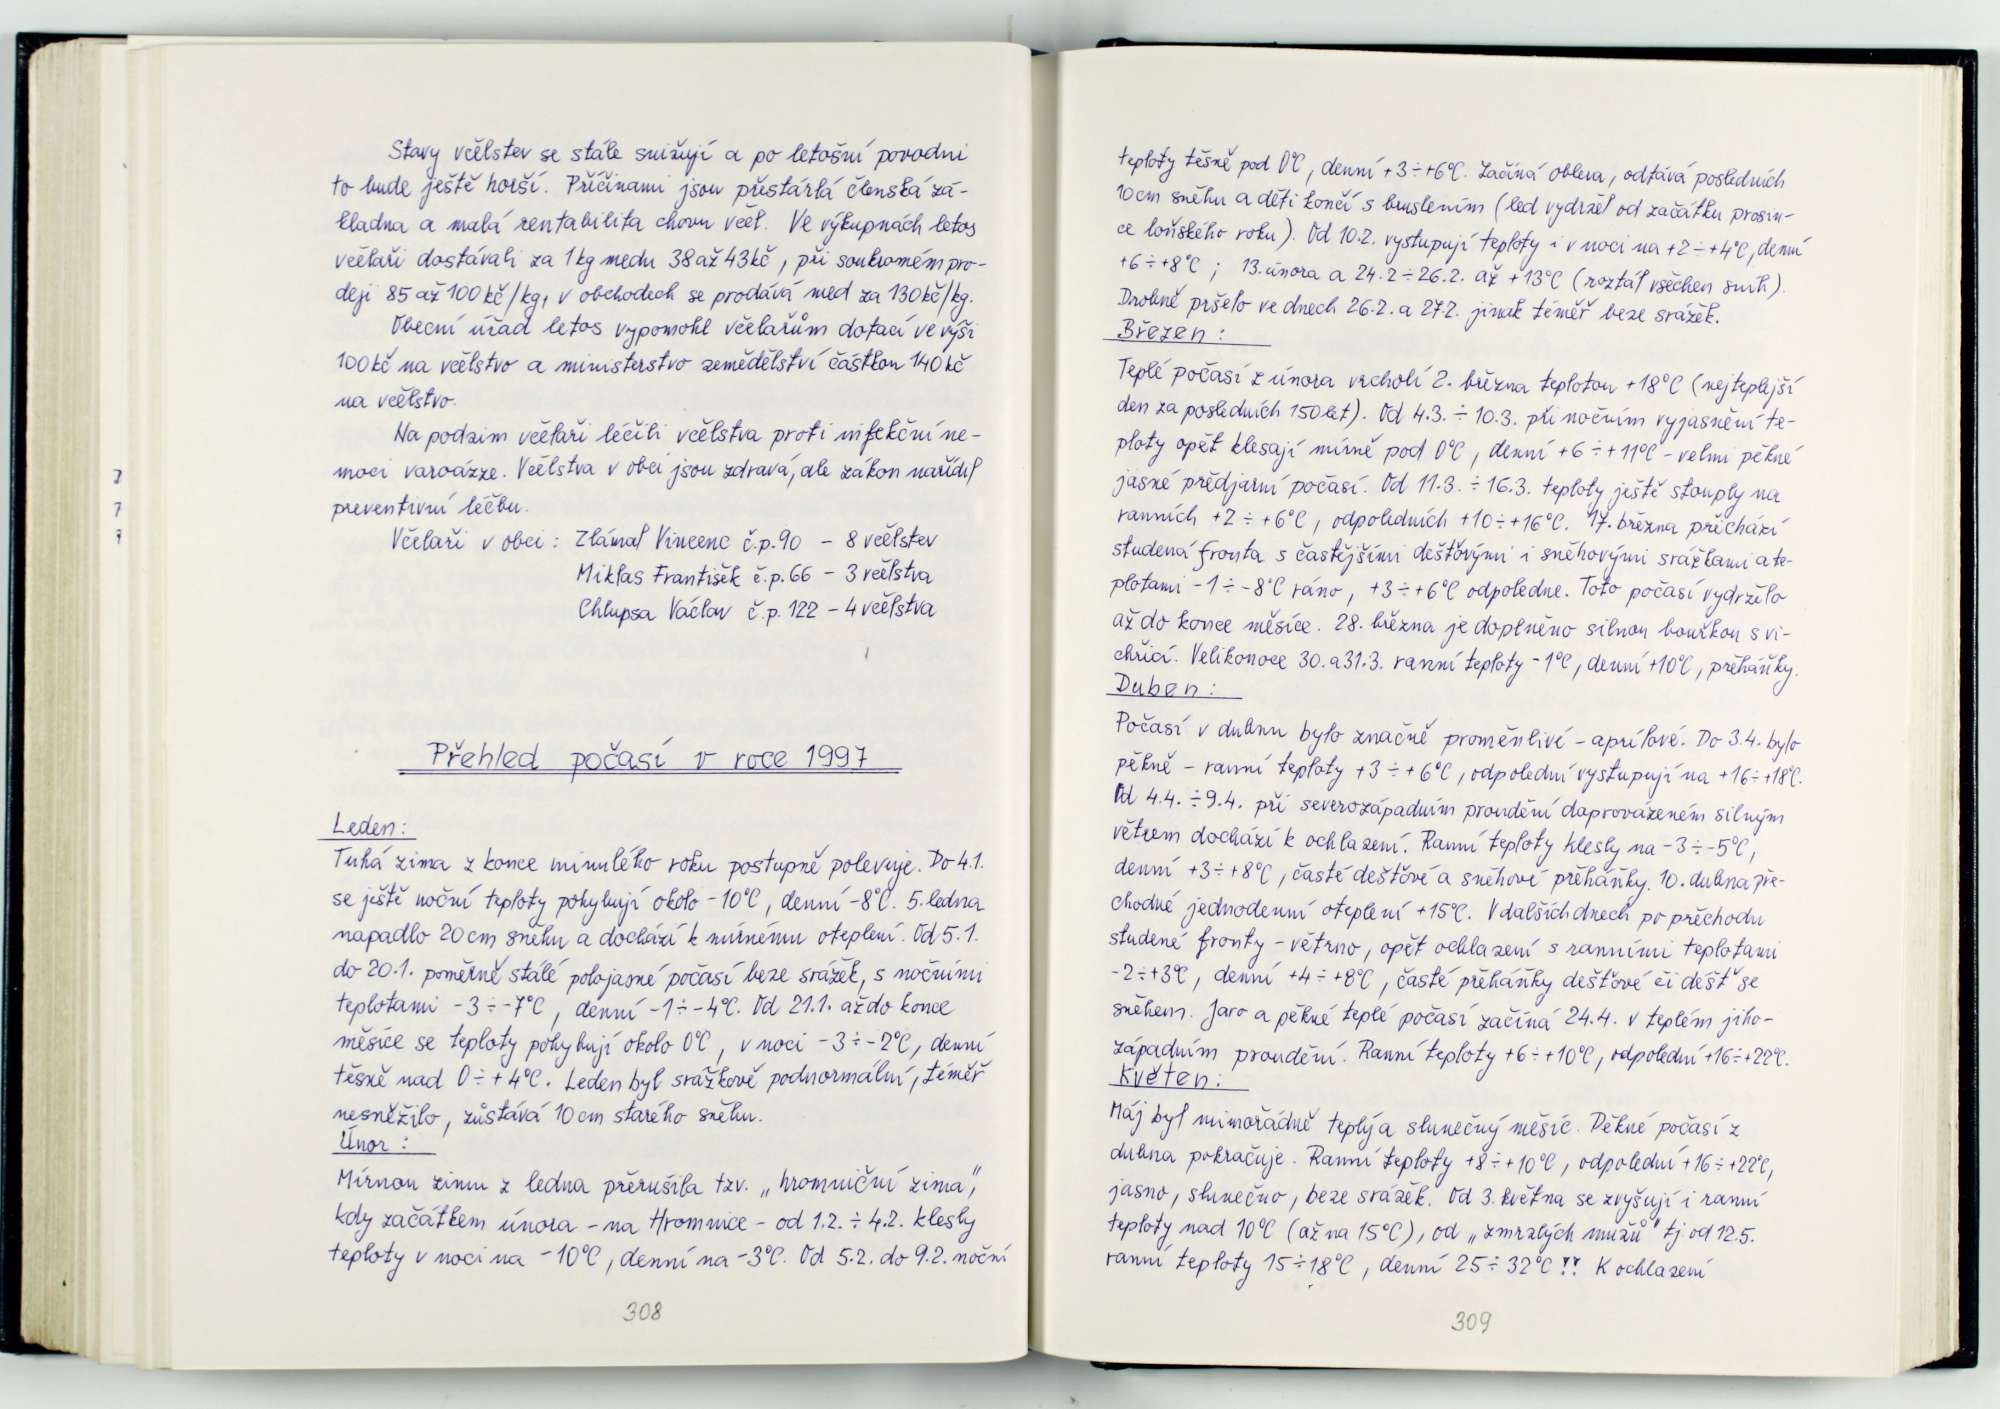 Stavy včelstev se stále snižují a po letošní povodni
to bude ještě horší. Příčinami jsou přestárlá členská zá-
kladna a malá rentabilita chovu včel. Ve výkupnách letos
včelaři dostávali za 1kg medu 38 až 43 kč, při soukromém pro-
deji 85 až 100 kč/kg, v obchodech se prodává med za 130 kč/kg.
Obecní úřad letos vypomohl včelařům dotací ve výši
100 kč na včelstvo a ministerstvo zemědělství částkou 140 kč
na včelstvo.
Na podzim včelaři léčili včelstva proti infekční ne-
moci varoázze. Včelstva v obci jsou zdravá, ale zákon nařídil
preventivní léčbu.
Včelaři v obci: Zlámal Vincenc č.p. 90 - 8 včelstev
Miklas František č.p. 66 - 3 včelstva
Chlupsa Václav č.p. 122 - 4 včelstva
Přehled počasí v roce 1997
Leden:
Tuhá zima z konce minulého roku postupně polevuje. Do 4.1.
se ještě noční teploty pohybují okolo -10°C, denní -8°C. 5. ledna
napadlo 20 cm sněhu a dochází k mírnému oteplení. Od 5.1.
do 20.1. poměrně stálé polojasné počasí beze srážek, s nočními
teplotami -3÷-7°C, denní -1÷-4°C. Od 21.1. až do konce
měsíce se teploty pohybují okolo 0°C, v noci -3÷-2°C, denní
těsně nad 0÷+4°C. Leden byl srážkově podnormální, téměř
nesněžilo, zůstává 10 cm starého sněhu.
Únor:
Mírnou zimu z ledna přerušila tzv. „hromniční zima",
kdy začátkem února - na Hromnice - od 1.2. ÷ 4.2. klesly
teploty v noci na -10°C, denní na -3°C. Od 5.2. do 9.2. noční
308
teploty těsně pod 0°C, denní +3÷+6°C. Začíná obleva, odtává posledních
10 cm sněhu a děti končí s bruslením (led vydržel od začátku prosin-
ce loňského roku). Od 10.2. vystupují teploty i v noci na +2÷+4°C, denní
+6÷+8°C; 13. února a 24.2÷26.2. až +13°C (roztál všechen sníh).
Drobně pršelo ve dnech 26.2. a 27.2. jinak téměř beze srážek.
Březen:
Teplé počasí z února vrcholí 2. března teplotou +18°C (nejteplejší
den za posledních 150 let). Od 4.3. ÷ 10.3. při nočním vyjasnění te-
ploty opět klesají mírně pod 0°C, denní +6÷+11°C - velmi pěkné
jasné předjarní počasí. Od 11.3. ÷ 16.3. teploty ještě stouply na
ranních +2÷+6°C, odpoledních +10÷+16°C. 17. března přechází
studená fronta s častějšími dešťovými i sněhovými srážkami a te-
plotami -1÷-8°C ráno, +3÷+6°C odpoledne. Toto počasí vydrželo
až do konce měsíce. 28. března je doplněno silnou bouřkou s vi-
chřicí. Velikonoce 30. a 31.3. ranní teploty -1°C, denní +10°C, přeháňky.
Duben:
Počasí v dubnu bylo značně proměnlivé - aprílové. Do 3.4. bylo
pěkně - ranní teploty +3÷+6°C, odpolední vystupují na +16÷+18°C.
Od 4.4. ÷ 9.4. při severozápadním proudění doprovázeném silným
větrem dochází k ochlazení. Ranní teploty klesly na -3÷-5°C,
denní +3÷+8°C, časté dešťové a sněhové přeháňky. 10. dubna pře-
chodné jednodenní oteplení +15°C. V dalších dnech po přechodu
studené fronty - větrno, opět ochlazení s ranními teplotami
-2÷+3°C, denní +4÷+8°C, časté přeháňky dešťové či déšť se
sněhem. Jaro a pěkné teplé počasí začíná 24.4. v teplém jiho-
západním proudění. Ranní teploty +6÷+10°C, odpolední +16÷+22°C.
Květen:
Máj byl mimořádně teplý a slunečný měsíc. Pěkné počasí z
dubna pokračuje. Ranní teploty +8÷+10°C, odpolední +16÷+22°C,
jasno, slunečno, beze srážek. Od 3. května se zvyšují i ranní
teploty nad 10°C (až na 15°C), od „zmrzlých mužů" tj. od 12.5.
ranní teploty 15÷18°C, denní 25÷32°C!! K ochlazení
309